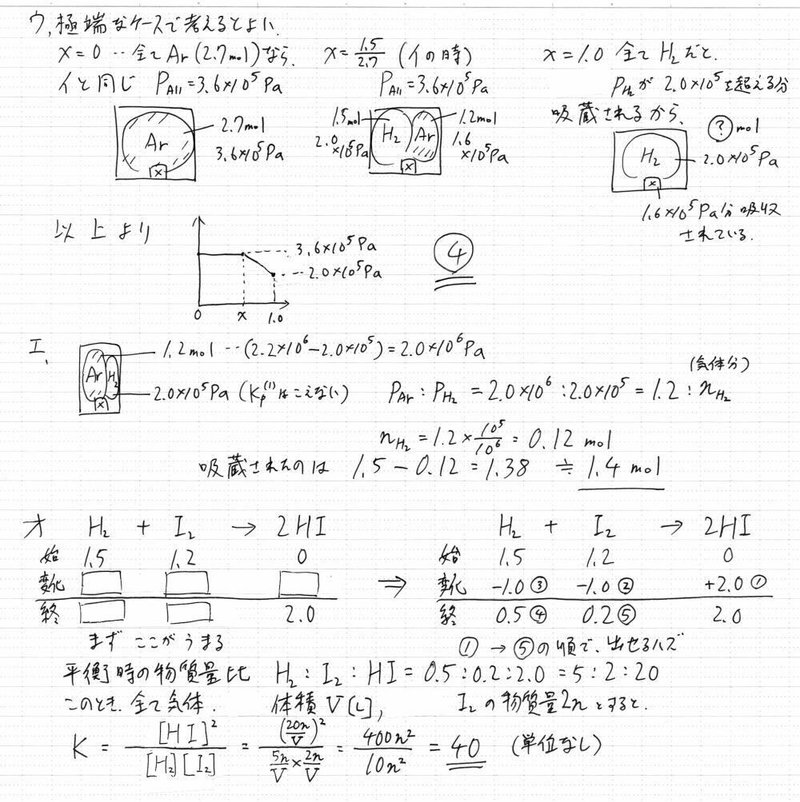 ウ, 極端なケースで考えるとよい.
x=0 ‥全てAr(2.7mol)なら、
イと同じ P_All=3.6×10⁵Pa
Ar
x
2.7mol
3.6×10⁵Pa
x=1.5/2.7 (イの時)
P_All=3.6×10⁵Pa
1.5mol
2.0×10⁵Pa
H₂
Ar
x
1.2mol
1.6×10⁵Pa
x=1.0 全てH₂だと、
P_H₂が 2.0×10⁵を超える分
吸蔵されるから、
H₂
x
? mol
2.0×10⁵Pa
1.6×10⁵Pa分吸収
されている.
以上より
3.6×10⁵Pa
2.0×10⁵Pa
0 x 1.0
④
エ,
Ar H₂
x
1.2mol ‥(2.2×10⁶-2.0×10⁵)=2.0×10⁶Pa
2.0×10⁵Pa (Kp⁽¹⁾はこえない)
(気体分)
P_Ar : P_H₂ = 2.0×10⁶ : 2.0×10⁵ = 1.2 : n_H₂
n_H₂ = 1.2×10⁵/10⁶ = 0.12 mol
吸蔵されたのは 1.5-0.12=1.38 ≒ 1.4 mol
オ H₂ + I₂ → 2HI
始 1.5 1.2 0
変化
終 2.0
まず ここがうまる
⇒
H₂ + I₂ → 2HI
始 1.5 1.2 0
変化 -1.0③ -1.0② +2.0①
終 0.5④ 0.2⑤ 2.0
①→⑤の順で、出せるハズ
平衡時の物質量比 H₂ : I₂ : HI = 0.5 : 0.2 : 2.0 = 5 : 2 : 20
このとき、全て気体. 体積V[L], I₂の物質量2nとすると.
K = [HI]²/[H₂][I₂] = (20n/V)²/(5n/V × 2n/V) = 400n²/10n² = 40 (単位なし)